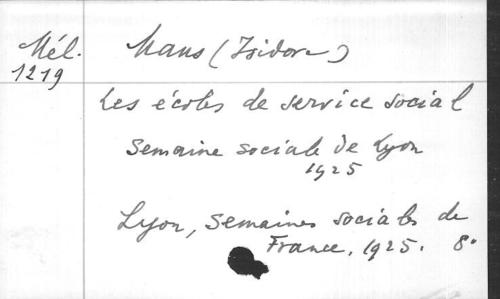 Mél.
1219
Maus (Isidore)
Les écoles de service social
Semaine sociale de Lyon
1925
Lyon, Semaines sociales de
France, 1925. 8°